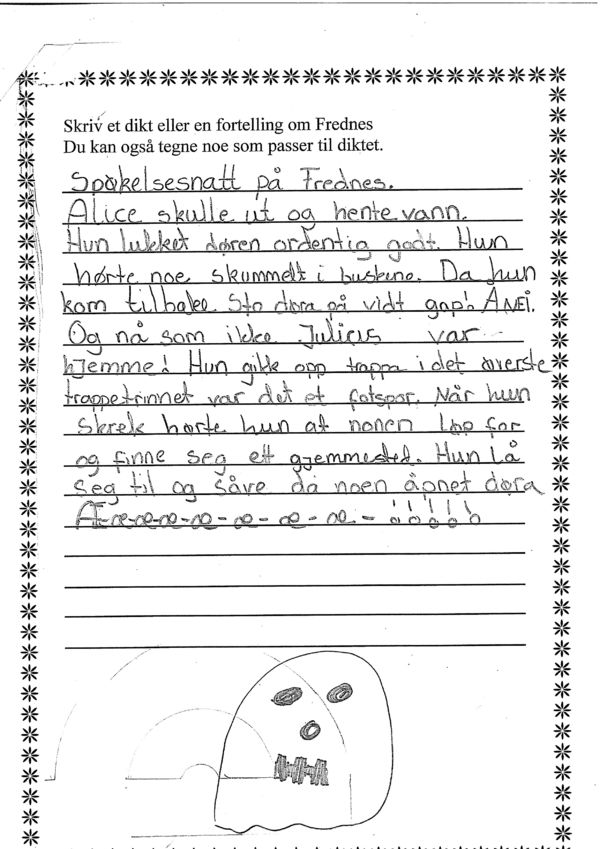 Skriv et dikt eller en fortelling om Frednes
Du kan også tegne noe som passer til diktet.
Spøkelsesnatt på Frednes.
Alice skulle ut og hente vann.
Hun lukket døren ordentig godt. Hun
hørte noe skummelt i buskene. Da hun
kom tilbake. Sto døra på vidt gap! Å NEi.
Og nå som ikke Julius var
hjemme! Hun gikk opp trappa i det øverste
trappetrinnet var det et fotspor. Når hun
skrek hørte hun at nonen løp for
og finne seg ett gjemmested. Hun lå
seg til og såve då noen åpnet døra
Æ-æ-æ-æ-æ-æ-æ-!!!!!